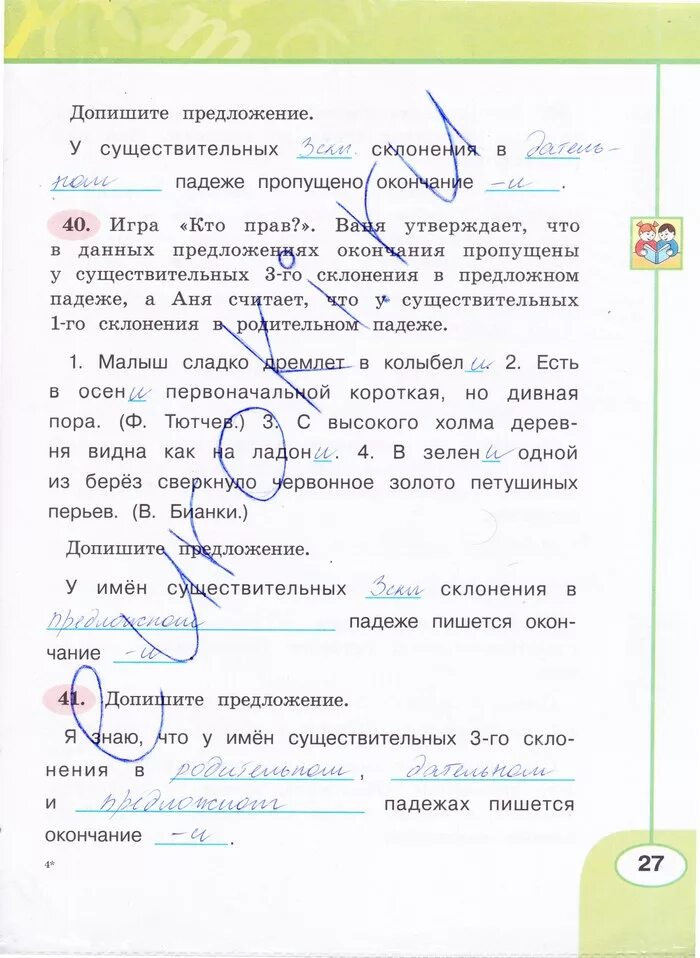 Допишите предложение.
У существительных 3скл. склонения в датель-
ном падеже пропущено окончание -и .
40. Игра «Кто прав?». Ваня утверждает, что
в данных предложениях окончания пропущены
у существительных 3-го склонения в предложном
падеже, а Аня считает, что у существительных
1-го склонения в родительном падеже.
1. Малыш сладко дремлет в колыбели. 2. Есть
в осени первоначальной короткая, но дивная
пора. (Ф. Тютчев.) 3. С высокого холма дерев-
ня видна как на ладони. 4. В зелени одной
из берёз сверкнуло червонное золото петушиных
перьев. (В. Бианки.)
Допишите предложение.
У имён существительных 3скл склонения в
предложном падеже пишется окон-
чание -и .
41. Допишите предложение.
Я знаю, что у имён существительных 3-го скло-
нения в родительном , дательном
и предложном падежах пишется
окончание -и .
4*
27
eurokiki